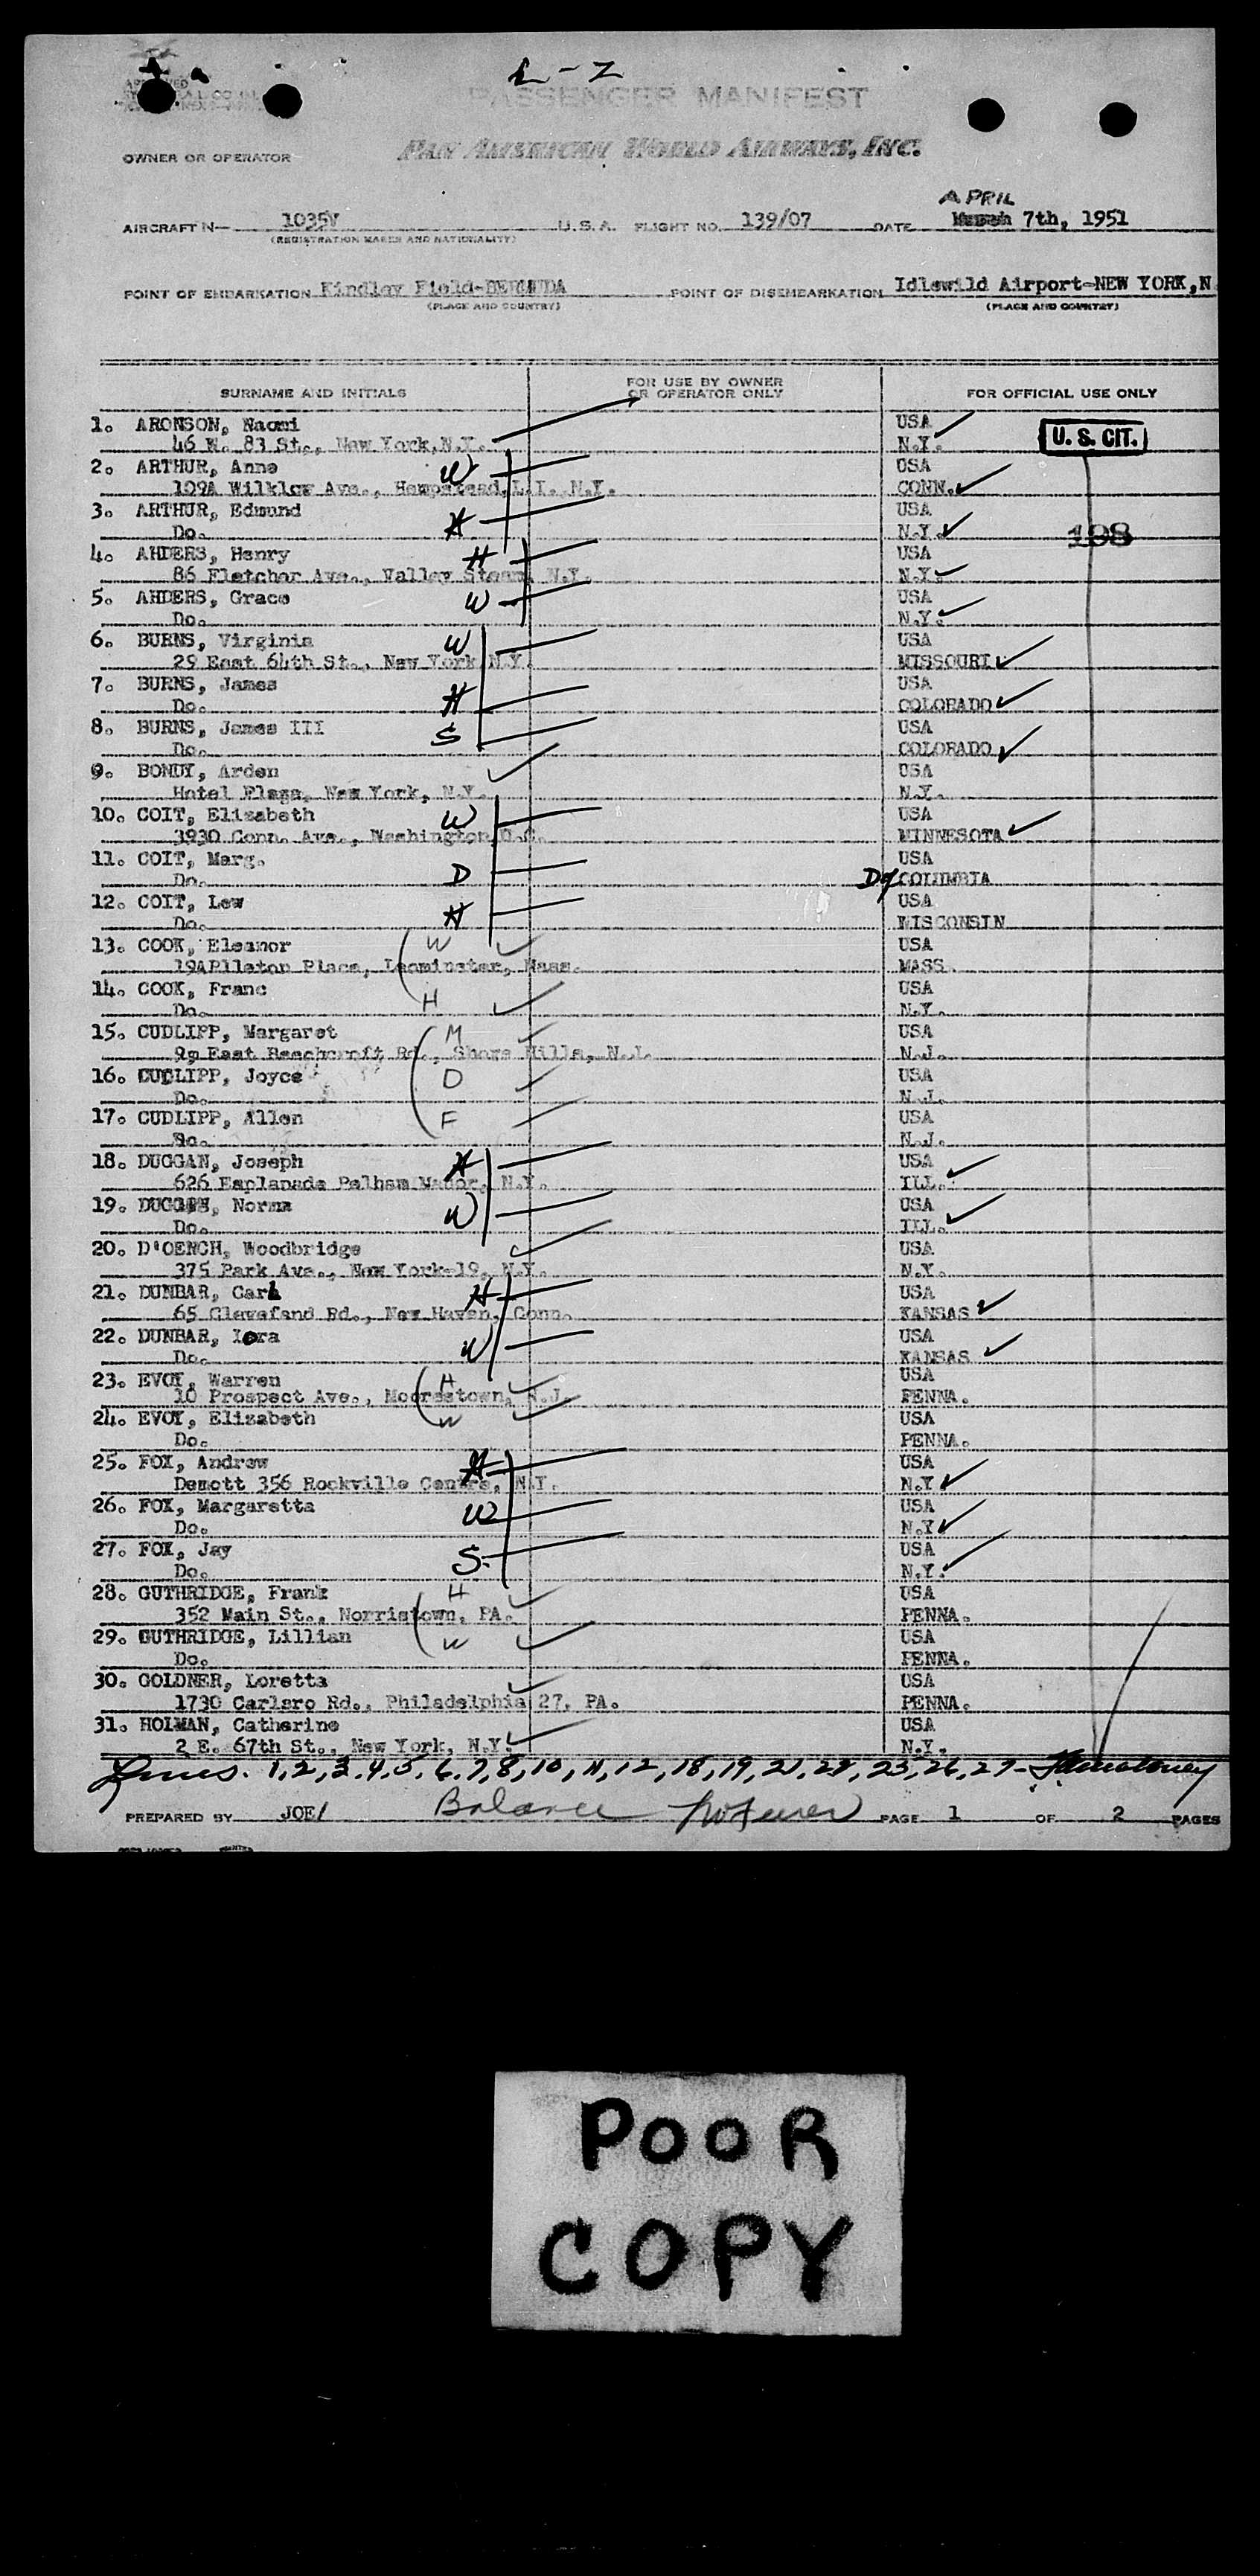 L-Z
PASSENGER MANIFEST
OWNER OR OPERATOR PAN AMERICAN WORLD AIRWAYS, INC.
APRIL
AIRCRAFT N- 1035V U.S.A. FLIGHT NO. 139/07 DATE March 7th, 1951
(REGISTRATION MARKS AND NATIONALITY)
POINT OF EMBARKATION Kindley Field-BERMUDA POINT OF DISEMBARKATION Idlewild Airport-NEW YORK,N
(PLACE AND COUNTRY) (PLACE AND COUNTRY)
SURNAME AND INITIALS FOR USE BY OWNER OR OPERATOR ONLY FOR OFFICIAL USE ONLY
1. ARONSON, Naomi USA
46 W. 83 St., New York,N.Y. N.Y. U. S. CIT.
2. ARTHUR, Anne W USA
109A Wilklow Ave., Hempstead,L.I. N.Y. CONN.
3. ARTHUR, Edmund H USA
Do. N.Y. 198
4. AHDERS, Henry H USA
86 Fletcher Ave., Valley Steam, N.Y. N.Y.
5. AHDERS, Grace W USA
Do. N.Y.
6. BURNS, Virginia W USA
29 East 64th St., New York,N.Y. MISSOURI
7. BURNS, James H USA
Do. COLORADO
8. BURNS, James III S USA
Do. COLORADO
9. BONDY, Arden USA
Hotel Plaga, New York, N.Y. N.Y.
10. COIT, Elizabeth W USA
3930 Conn. Ave., Washington,D.C. MINNESOTA
11. COIT, Marg. D USA
Do. D of COLUMBIA
12. COIT, Lew H USA
Do. WISCONSIN
13. COOK, Eleanor W USA
19APlleton Place, Leominster, Mass. MASS.
14. COOK, Franc USA
Do. H N.Y.
15. CUDLIPP, Margaret M USA
99 East Beechcroft Rd., Shore Hills, N.J. N.J.
16. CUDLIPP, Joyce D USA
Do. N.J.
17. CUDLIPP, Allen F USA
Do. N.J.
18. DUGGAN, Joseph H USA
626 Esplanade Pelham Manor, N.Y. ILL.
19. DUGGAN, Norma W USA
Do. ILL.
20. D'OENCH, Woodbridge USA
375 Park Ave., New York-19, N.Y. N.Y.
21. DUNBAR, Carl H USA
65 Clevefand Rd., New Haven, Conn. KANSAS
22. DUNBAR, Lora W USA
Do. KANSAS
23. EVOY, Warren H USA
10 Prospect Ave., Moorestown, N.J. PENNA.
24. EVOY, Elizabeth W USA
Do. PENNA.
25. FOX, Andrew H USA
Demott 356 Rockville Centre, N.Y. N.Y.
26. FOX, Margaretta W USA
Do. N.Y.
27. FOX, Jay S. USA
Do. N.Y.
28. GUTHRIDGE, Frank H USA
352 Main St., Norristown, PA. PENNA.
29. GUTHRIDGE, Lillian W USA
Do. PENNA.
30. GOLDNER, Loretta USA
1730 Carlsro Rd., Philadelphia 27, PA. PENNA.
31. HOLMAN, Catherine USA
2 E. 67th St., New York, N.Y. N.Y.
Lines. 1, 2, 3, 4, 5, 6, 7, 8, 10, 11, 12, 18, 19, 21, 22, 25, 26, 27-
PREPARED BY JOE/ Balance PAGE 1 OF 2 PAGES
POOR
COPY